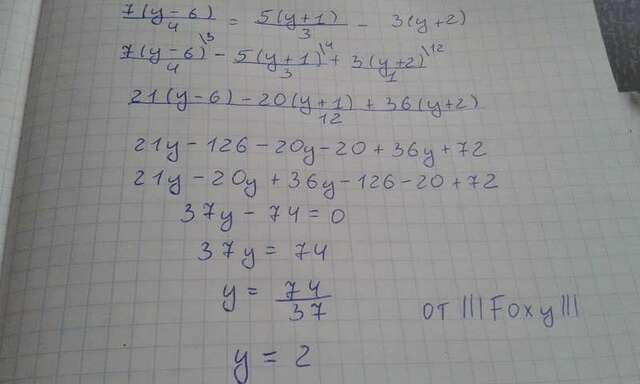 7(y-6)/4 = 5(y+1)/3 - 3(y+2)
7(y-6)\3/4 - 5(y+1)\4/3 + 3(y+2)\12/1
21(y-6)-20(y+1)+36(y+2)/12
21y-126-20y-20+36y+72
21y-20y+36y-126-20+72
37y-74=0
37y=74
y=74/37
от |||Foxy|||
y=2